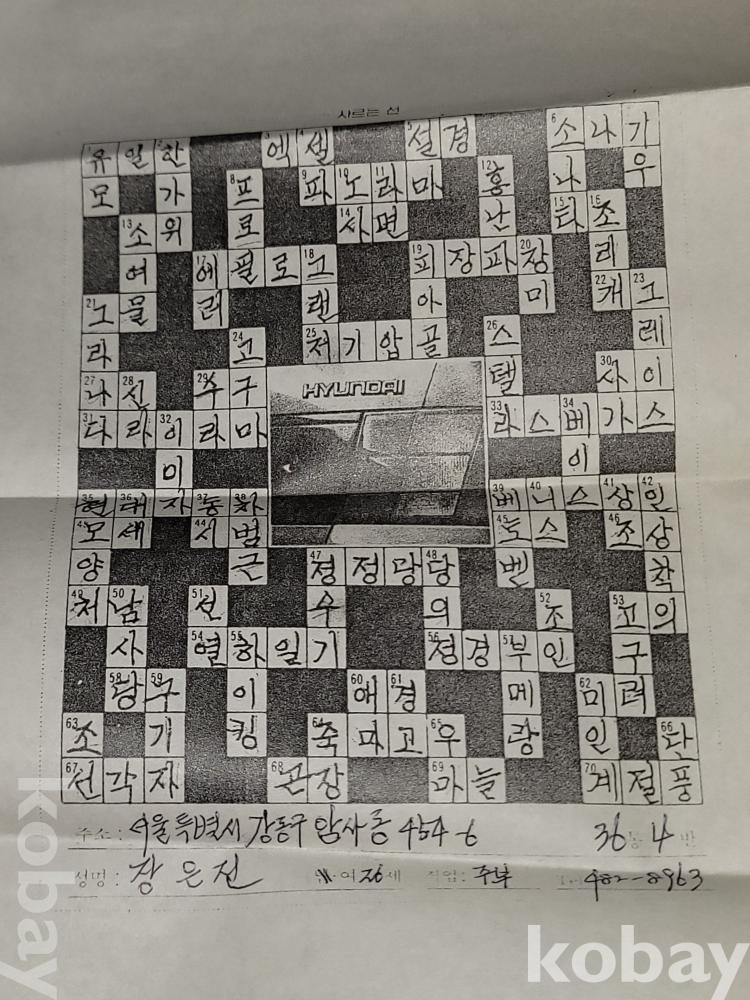 사르는 선
1유 일 2한 3엑 4셀 5설 경 6소 나 7가
모 가 8프 9파 10노 11라 마 12홍 나 우
13소 위 로 14사 면 난 15타 16조
여 17에 필 로 18그 19피 장 파 20장 리
21그 물 러 랜 아 미 22캐 23그
라 24고 25저 기 압 골 26스 레
27나 28신 29수 구 HYUNDAI 텔 30사 이
31다 라 32이 라 마 33라 스 34베 가 스
미 이
35현 36대 자 37동 38차 39베 40니 스 41상 42인
모 세 44시 범 45토 스 46조 상
양 근 47정 정 당 48당 벤 착
49처 50남 51선 수 의 52조 53고 의
사 54열 55하 일 기 56정 경 57부 인 구
58당 59구 이 60애 61경 메 62미 려
63조 기 킹 64축 마 고 65우 랑 일 66단
67선 각 자 68곤 장 69마 늘 70계 절 풍
주소 : 서울특별시 강동구 암사동 454-6 36통 4반
성명 : 장은진 여 26세 직업 : 주부 482-8963
kobay
kobay